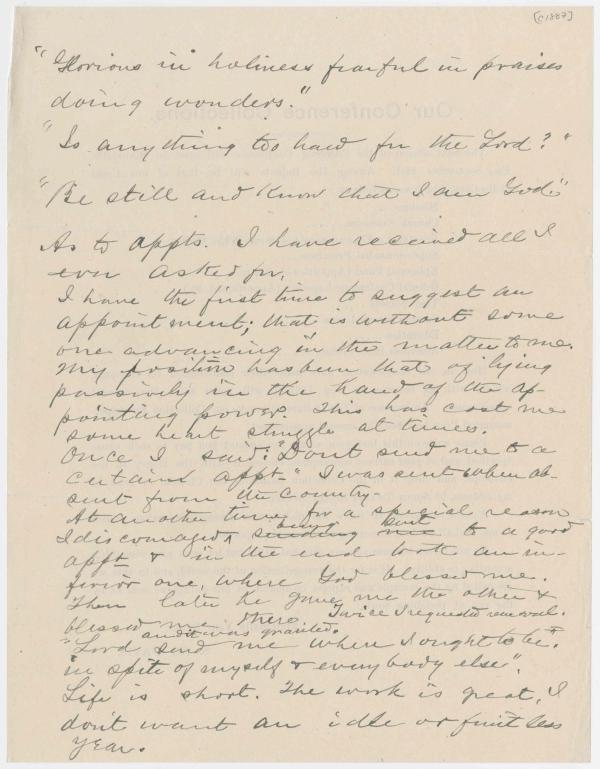 [c1887]
"Glorious in holiness fearful in praises
doing wonders."
"Is anything too hard for the Lord?"
"Be still and know that I am God."
As to appts. I have received all I
ever asked for.
I have the first time to suggest an
appointment; that is without some
one advancing in the matter to me.
My position has been that of lying
passively in the hand of the ap-
pointing power. This has cost me
some heart struggle at times.
Once I said: "Don't send me to a
certain appt-" I was sent when ab-
sent from the country-
At another time for a special reason
being sent
I discouraged sending me to a good
appt & in the end took an in-
ferior one, where God blessed me.
Then later he gave me the other &
blessed me there. Twice I requested renewal.
and it was granted.
"Lord send me where I ought to be,
in spite of myself & everybody else".
Life is short. The work is great, I
don't want an idle or fruitless
year.